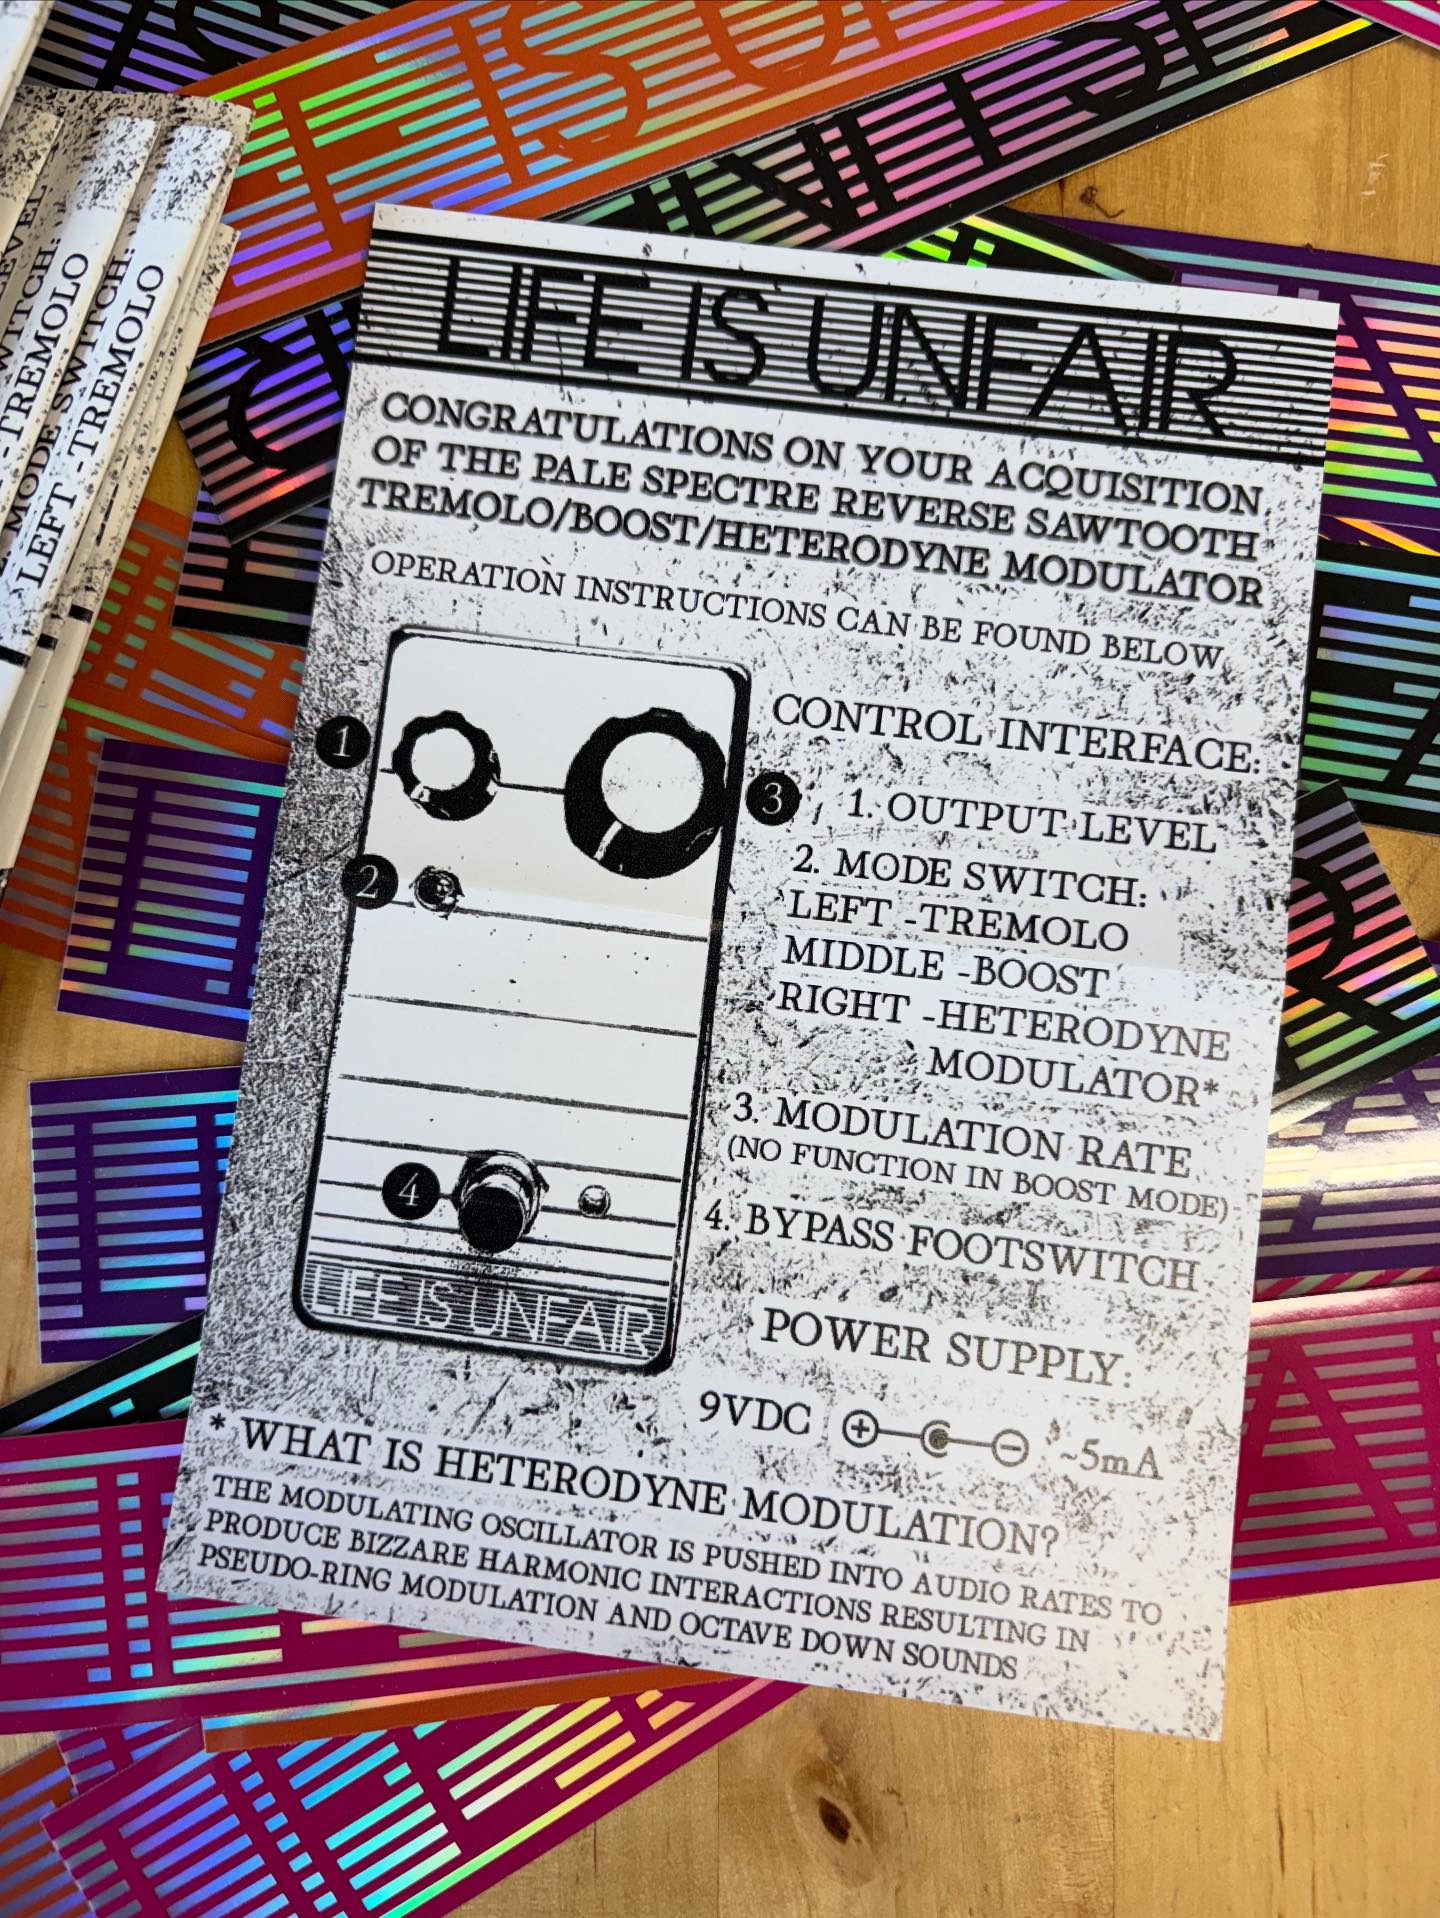 LEVEL
SWITCH:
-TREMOLO
MODE SWITCH:
LEFT -TREMOLO
LIFE IS UNFAIR
CONGRATULATIONS ON YOUR ACQUISITION
OF THE PALE SPECTRE REVERSE SAWTOOTH
TREMOLO/BOOST/HETERODYNE MODULATOR
OPERATION INSTRUCTIONS CAN BE FOUND BELOW
1
2
3
4
LIFE IS UNFAIR
CONTROL INTERFACE:
1. OUTPUT LEVEL
2. MODE SWITCH:
LEFT -TREMOLO
MIDDLE -BOOST
RIGHT -HETERODYNE
MODULATOR*
3. MODULATION RATE
(NO FUNCTION IN BOOST MODE)
4. BYPASS FOOTSWITCH
POWER SUPPLY:
9VDC + - ~5mA
* WHAT IS HETERODYNE MODULATION?
THE MODULATING OSCILLATOR IS PUSHED INTO AUDIO RATES TO
PRODUCE BIZZARE HARMONIC INTERACTIONS RESULTING IN
PSEUDO-RING MODULATION AND OCTAVE DOWN SOUNDS